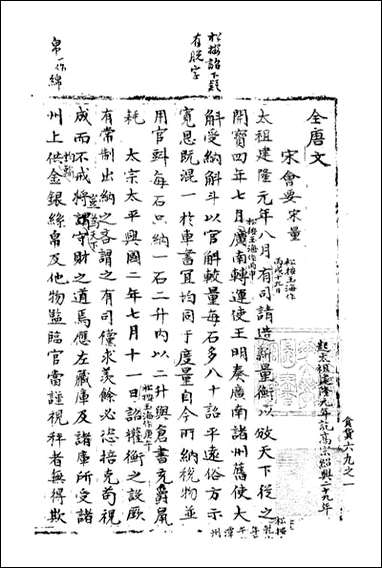 食貨六九之一
起太祖建隆元年訖高宗紹興二十九年
全唐文
宋會要宋量
太祖建隆元年八月有司請造新量衡以頒天下從之
松按玉海作丙戌十九日
開寶四年七月廣南轉運使王明奏廣南諸州舊使大
松按玉海作丙申
斛受納斛斗以官斛較量每石多八十詔平遠俗方示
寬恩既混一於車書宜均同于度量自今所納稅物並
用官斗每石只納一石二升內以二升與倉書充雀鼠
耗 太宗太平興國二年七月十一日詔權衡之設厥
松按玉海作庚午
有常制出納之吝謂之有司儻求羨餘必恣掊克苟視
成而不戒將謂守財之道焉應左藏庫及諸庫所受諸
豈為天下
州上供金銀絲帛及他物監臨官當謹視秤者無得欺
均輸
松按詔下疑有脫字
帛一作綿